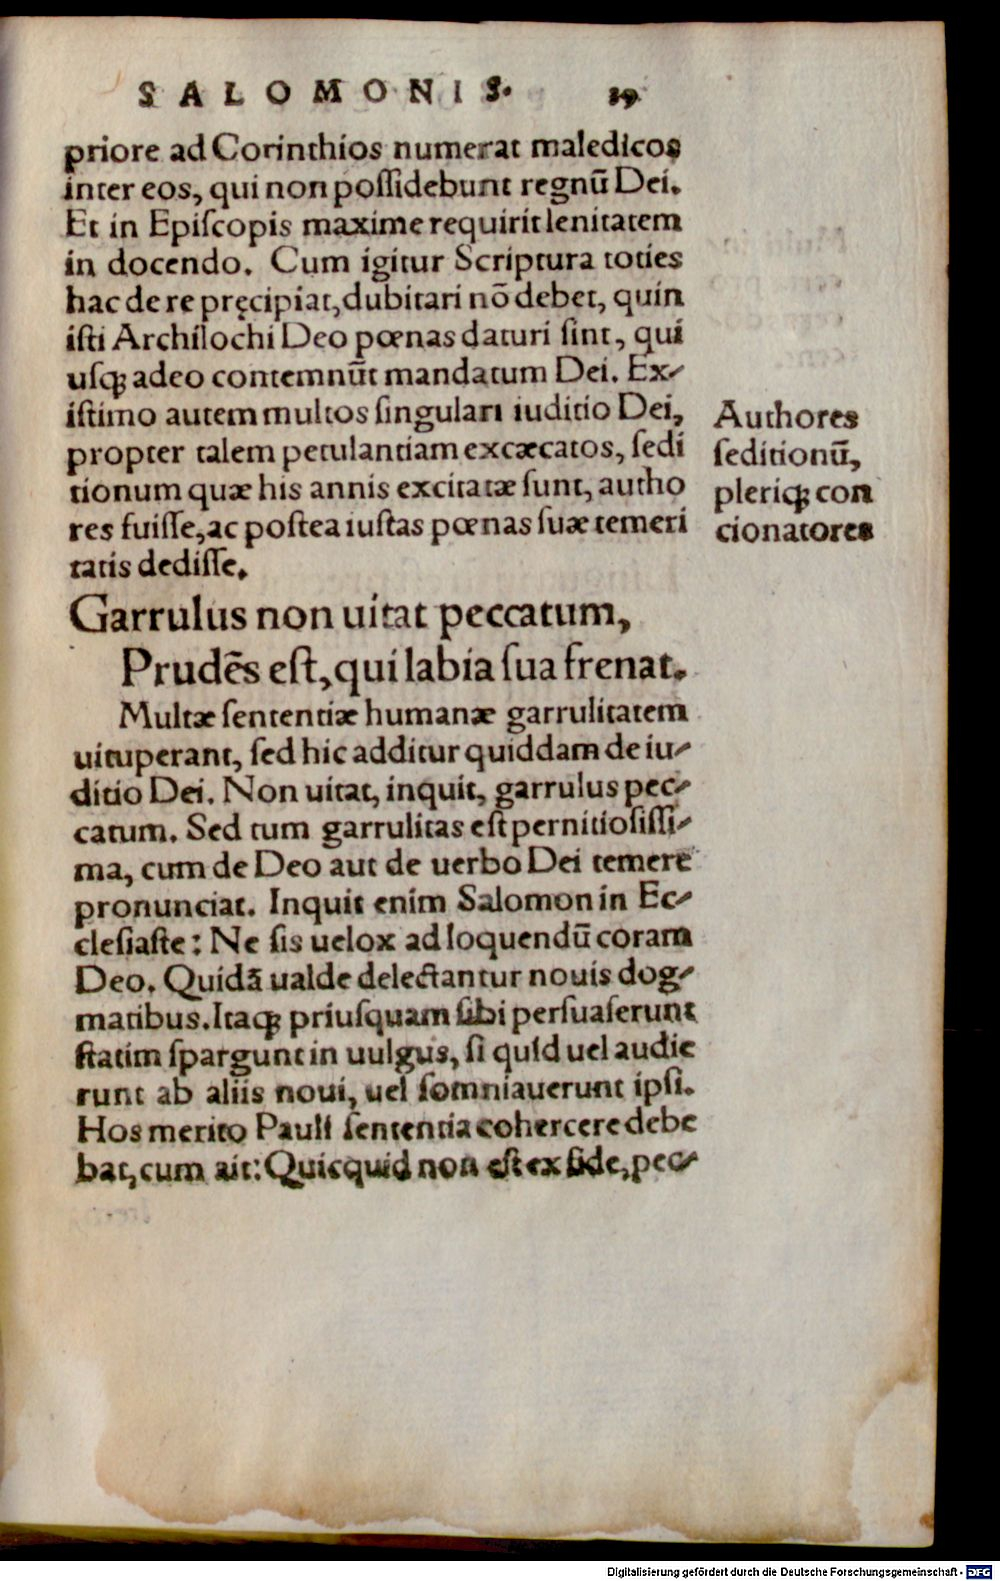 SALOMONIS. 39
priore ad Corinthios numerat maledicos
inter eos, qui non poſſidebunt regnū Dei.
Et in Epiſcopis maxime requirit lenitatem
in docendo. Cum igitur Scriptura toties
hac de re pręcipiat, dubitari nō debet, quin
iſti Archilochi Deo pœnas daturi ſint, qui
uſqꝫ adeo contemnūt mandatum Dei. Ex-
iſtimo autem multos ſingulari iuditio Dei,
propter talem petulantiam excæcatos, ſedi
tionum quæ his annis excitatæ ſunt, autho
res fuiſſe, ac poſtea iuſtas pœnas ſuæ temeri
tatis dediſſe.
Authores
ſeditionū,
pleriqꝫ con
cionatores
Garrulus non uitat peccatum,
Prudēs eſt, qui labia ſua frenat.
Multæ ſententiæ humanæ garrulitatem
uituperant, ſed hic additur quiddam de iu-
ditio Dei. Non uitat, inquit, garrulus pec-
catum. Sed tum garrulitas eſt pernitioſiſſi-
ma, cum de Deo aut de uerbo Dei temere
pronunciat. Inquit enim Salomon in Ec-
cleſiaſte: Ne ſis uelox ad loquendū coram
Deo. Quidā ualde delectantur nouis dog-
matibus. Itaqꝫ priuſquam ſibi perſuaſerunt
ſtatim ſpargunt in uulgus, ſi quid uel audie
runt ab aliis noui, uel ſomniauerunt ipſi.
Hos merito Pauli ſententia cohercere debe
bat, cum ait: Quicquid non eſt ex fide, pec-
Digitalisierung gefördert durch die Deutsche Forschungsgemeinschaft - DFG